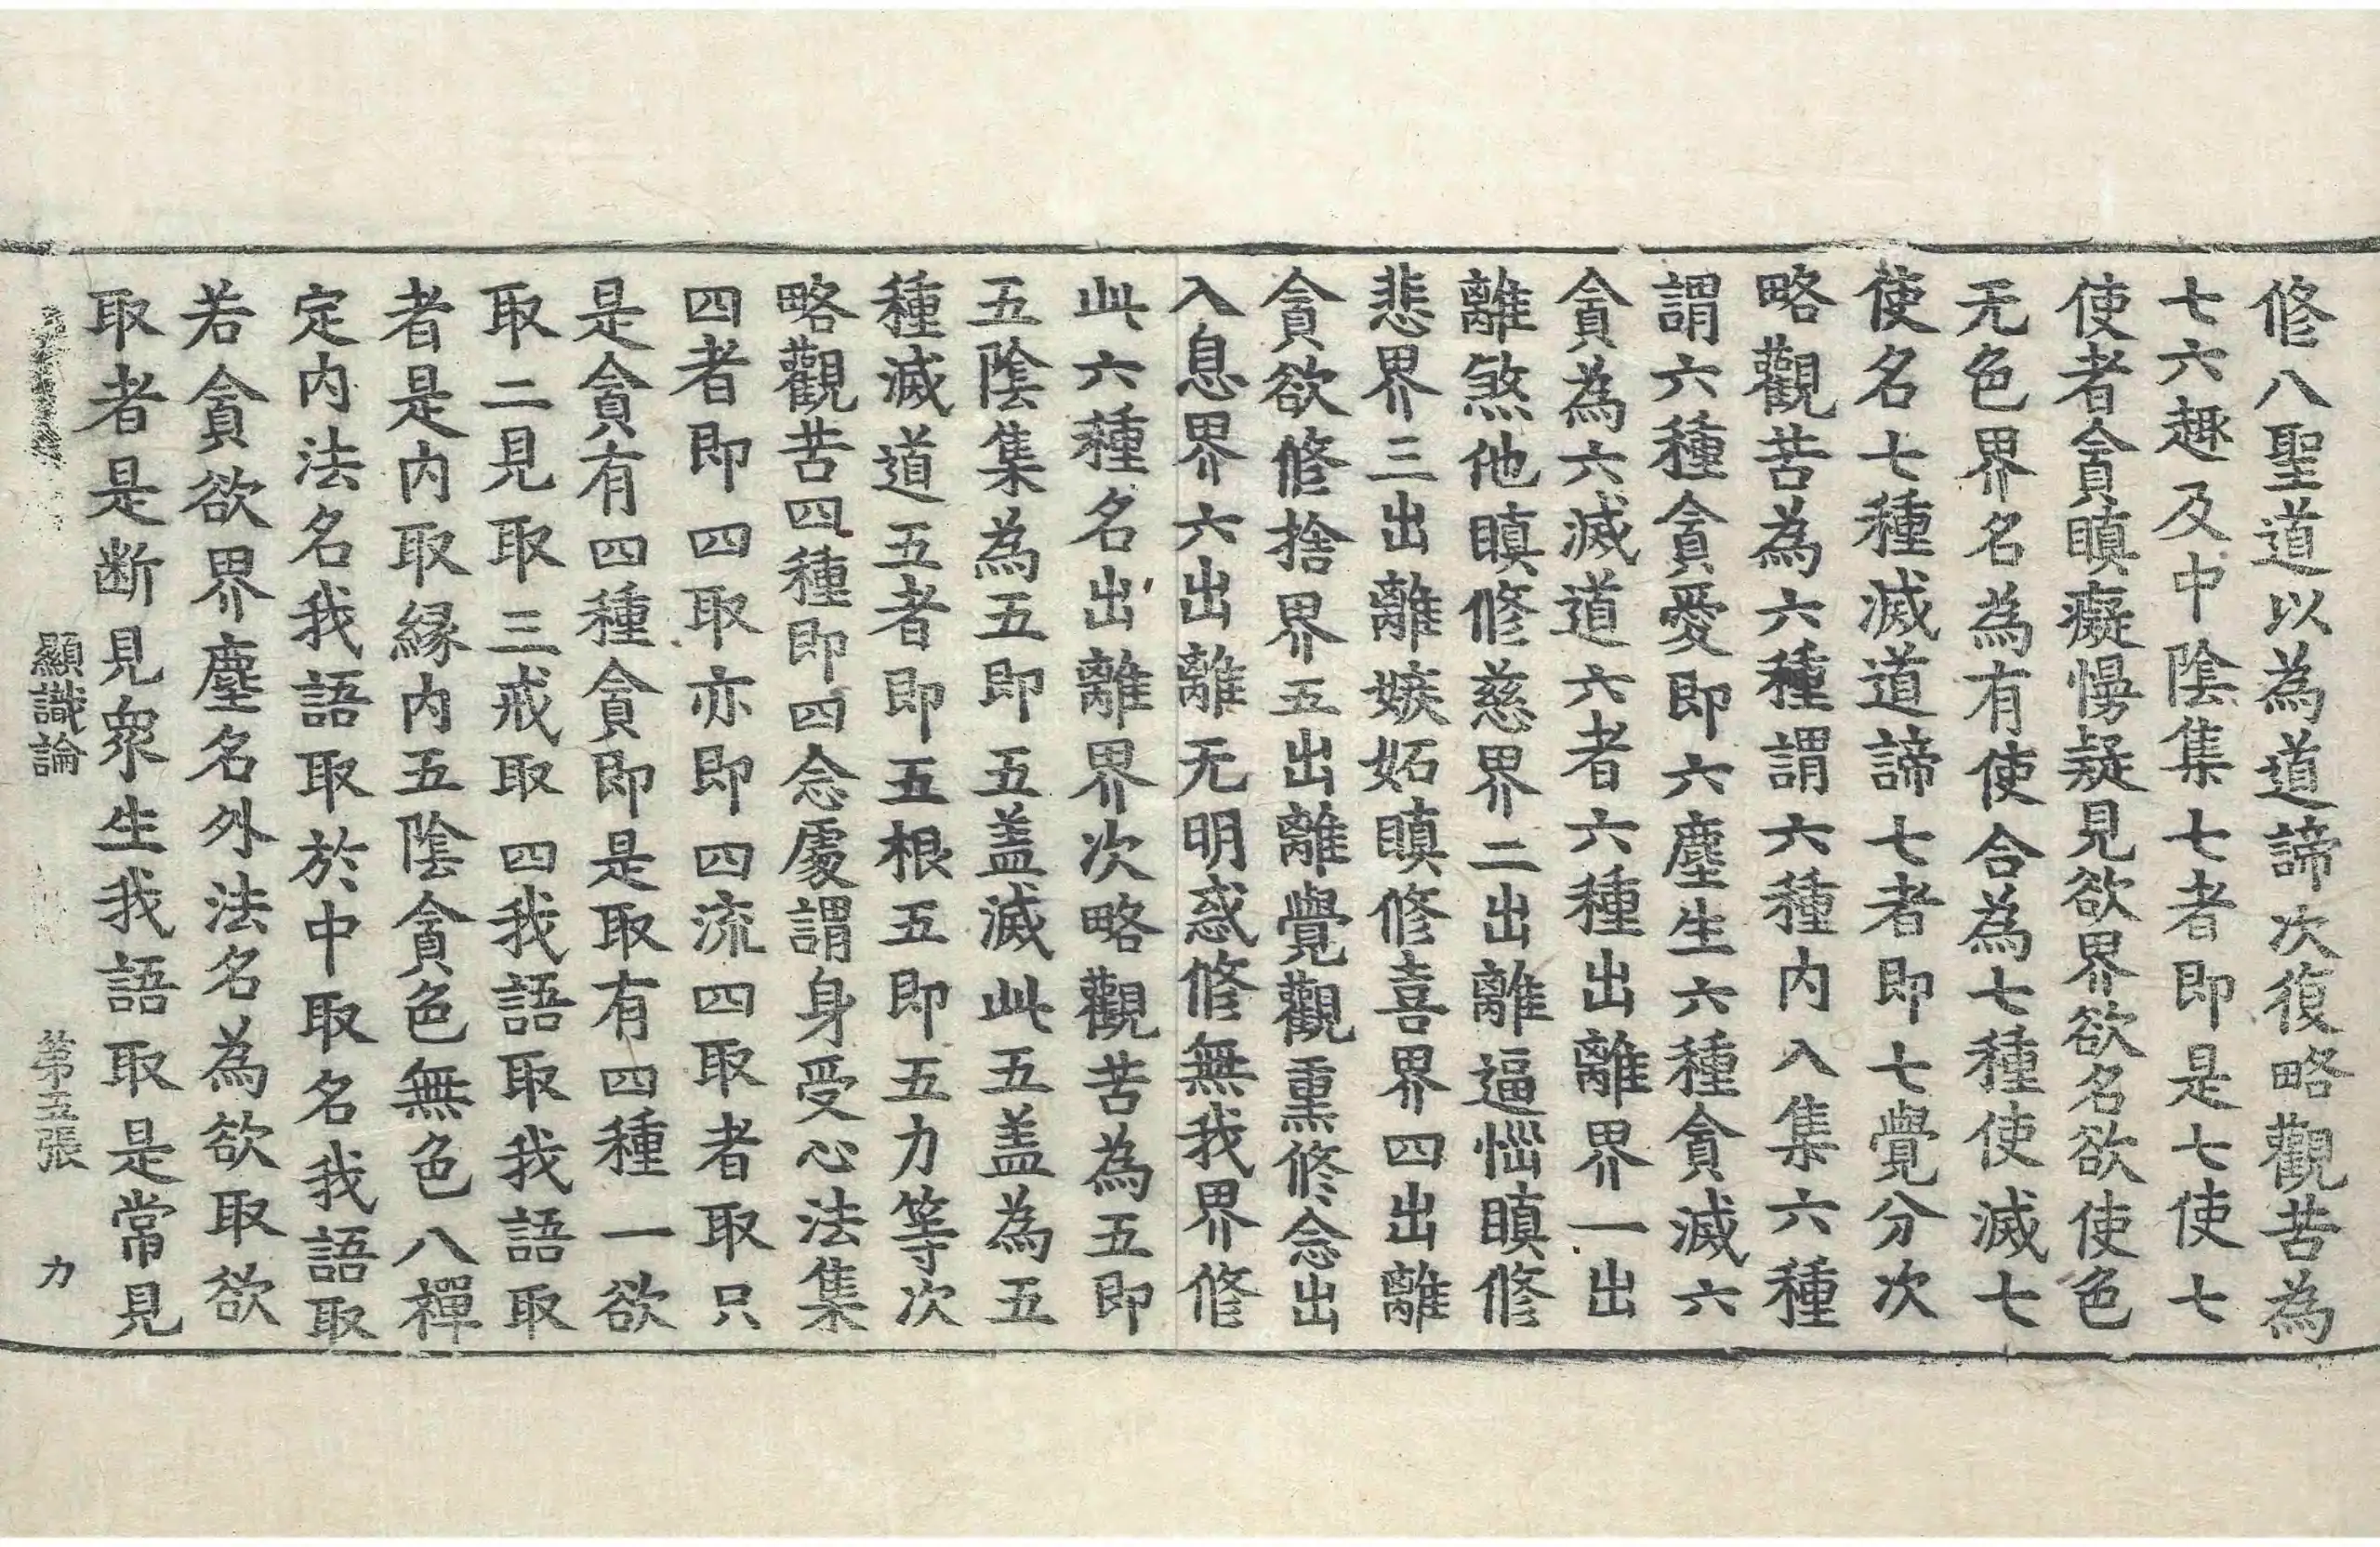 修八聖道以為道諦次復略觀苦為
七六趣及中陰集七者即是七使七
使者貪瞋癡慢疑見欲界欲名欲使色
无色界名為有使合為七種使滅七
使名七種滅道諦七者即七覺分次
略觀苦為六種謂六種內入集六種
謂六種貪愛即六塵生六種貪滅六
貪為六滅道六者六種出離界一出
離煞他瞋修慈界二出離逼惱瞋修
悲界三出離嫉妬瞋修喜界四出離
貪欲修捨界五出離覺觀熏修念出
入息界六出離无明惑修無我界修
此六種名出離界次略觀苦為五即
五陰集為五即五盖滅此五盖為五
種滅道五者即五根五即五力等次
略觀苦四種即四念處謂身受心法集
四者即四取亦即四流四取者取只
是貪有四種貪即是取有四種一欲
取二見取三戒取四我語取我語取
者是內取緣內五陰貪色無色八禪
定內法名我語取於中取名我語取
若貪欲界塵名外法名為欲取欲
取者是断見衆生我語取是常見
顯識論 第五張 力